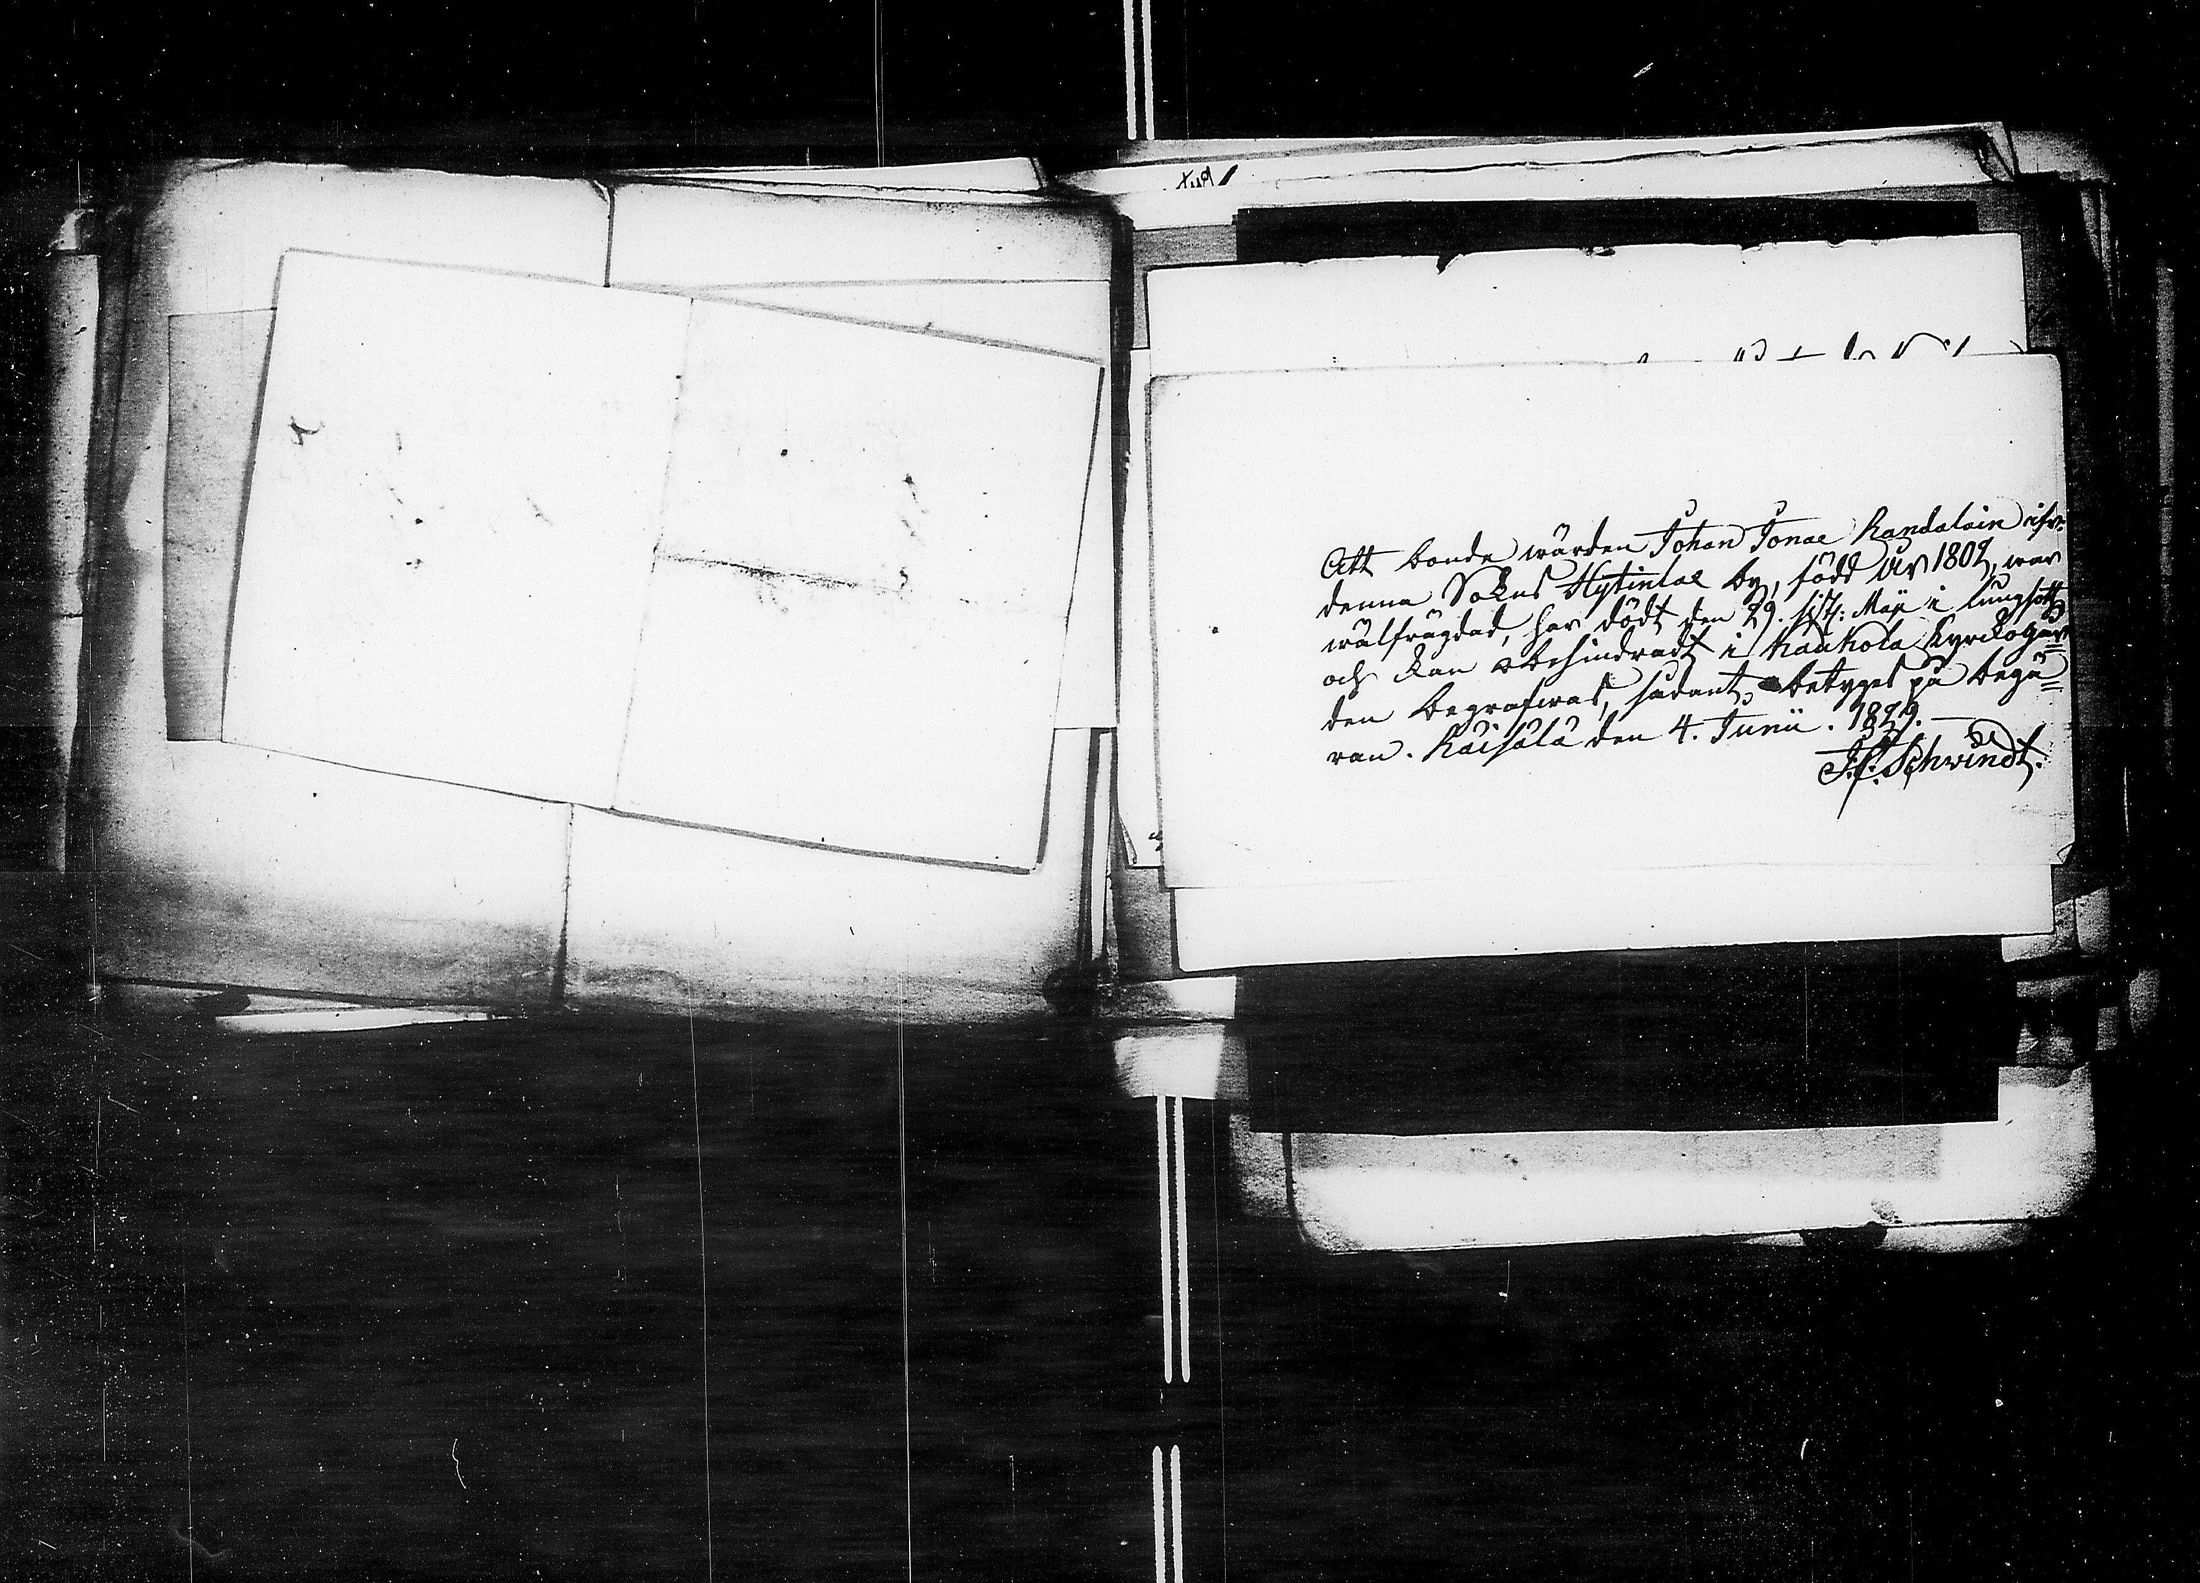 Att bonde wärden Johan Jonae Kandalain ifr:
denna Sokns Hytinlae by, född År 1802, war
wälfrägdad, har dödt den 29. sistl: Maji i lungsott
och kan obehindradt i Kaukola Kyrkogår=
den begrafwas, sådant betyges på begä=
ran. Räisälä den 4. Junii. 1829.
J. F. Schwindt.